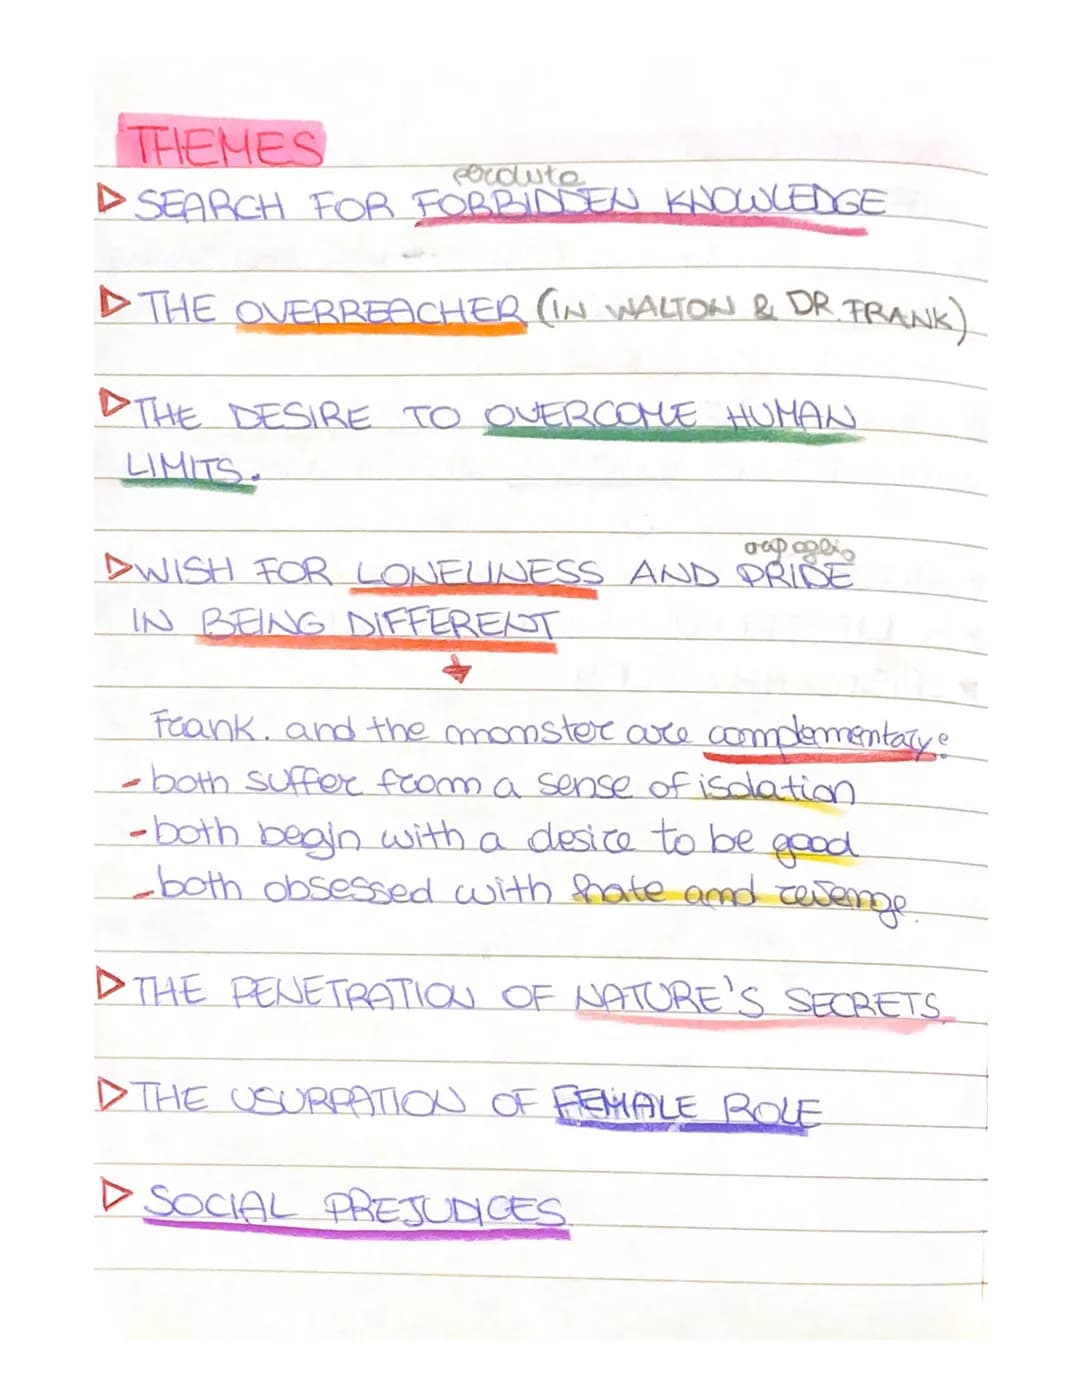 THEMES
▷ SEARCH FOR FORBIDDEN KNOWLEDGE
▷ THE OVERREACHER (IN WALTON & DR. FRANK)
▷ THE DESIRE TO OVERCOME HUMAN
LIMITS.
orgoglio
▷ WISH FOR LONELINESS AND PRIDE
IN BEING DIFFERENT
↓
Frank. and the monster are complementary:
- both suffer from a sense of isolation
- both begin with a desire to be good
- both obsessed with hate and revenge.
▷ THE PENETRATION OF NATURE'S SECRETS.
▷ THE USURPATION OF FEMALE ROLE
▷ SOCIAL PREJUDICES.